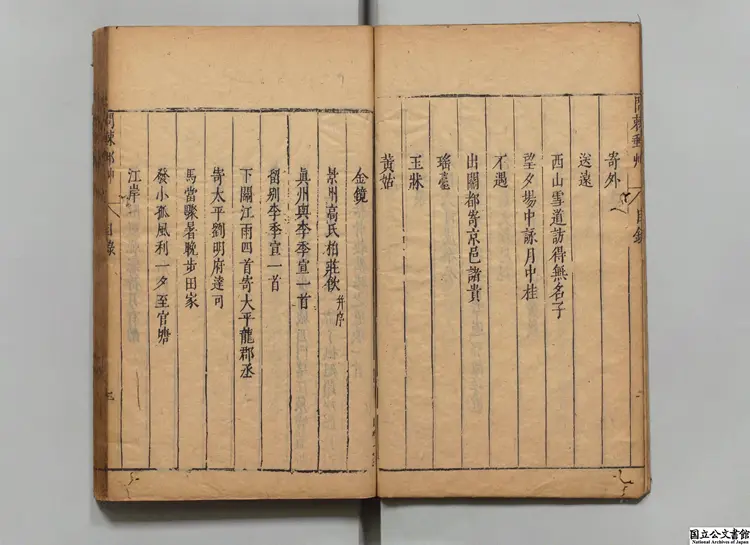 問棘郵艸 目錄
寄外
送遠
西山雪道訪得無名子
望夕場中詠月中桂
不遇
出關都寄京邑諸貴
瑤臺
玉牀
黃姑
金鏡
景州高氏柏莊飲 并序
眞州與李季宣一首
留別李季宣一首
下關江雨四首寄大平龍郡丞
寄太平劉明府達可
馬當驟暑晚步田家
發小孤風利一夕至官塘
江岸
問棘郵艸 目錄
国立公文書館
National Archives of Japan